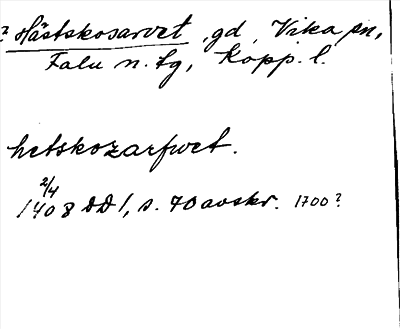 ? Hästskosarvet, gd, Vika sn,
Falu n. tg, Kopp. l.
hetskozarfwet.
2/4
1408 DD 1, s. 70 avskr. 1700?